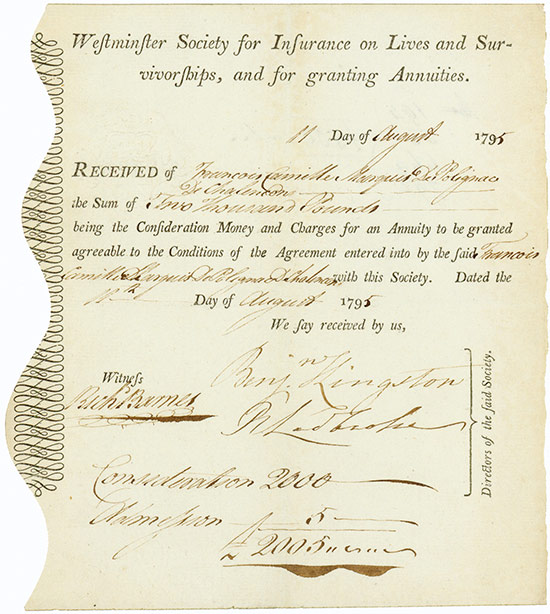 Weſtminſter Society for Inſurance on Lives and Sur-
vivorſhips, and for granting Annuities.
11 Day of August 1795
RECEIVED of Francois Camille Marquis De Polignac
De Chalencon
the Sum of Two Thousand Pounds
being the Conſideration Money and Charges for an Annuity to be granted
agreeable to the Conditions of the Agreement entered into by the ſaid Francois
Camille Marquis De Polignac D. with this Society. Dated the
Day of August 1795
We ſay received by us,
Witneſs
Benjn. Kingston
Richd. Barnes
R Ledbroke
Directors of the ſaid Society.
Consideration 2000
5
£ 2005